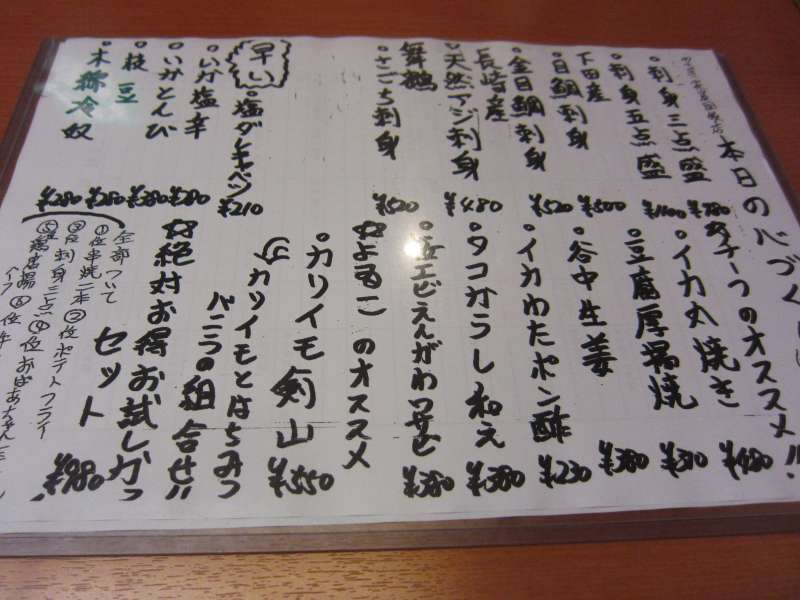 本日の心づく
。刺身三点盛 ¥780
。刺身五点盛 ¥1100
下田産
。目鯛刺身 ¥500
。金目鯛刺身 ¥520
長崎産
。天然アジ刺身 ¥480
舞鶴
。さごち刺身 ¥520
早い
。塩ダレキャベツ ¥210
。いか塩辛 ¥280
。いかとんび ¥380
。枝豆 ¥280
。木綿冷奴 ¥280
チーフのオススメ!!
。イカ丸焼き ¥480
。豆腐厚揚焼 ¥310
。谷中生姜 ¥380
。イカわたポン酢 ¥230
。タコからし和え ¥380
エビえんがわ ¥380
☆よるこのオススメ
。カリイモ剣山 ¥550
カリイモとはちみつ
バニラの組合せ!!
☆絶対お得お試し
セット ¥980
全部ついて
①位串焼二本②位ポテトフライ
③位刺身三点④位おばあちゃん